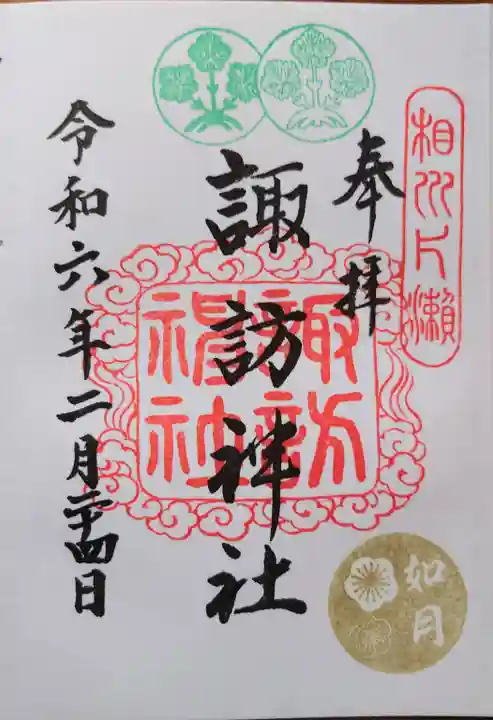 相州片瀬
奉拝
諏訪神社
諏訪神社
令和六年二月二十四日
如月